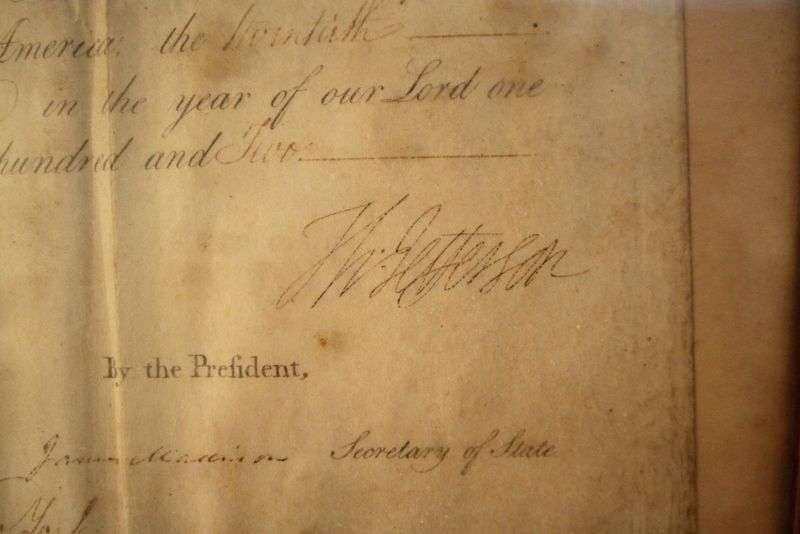 America: the twentieth
in the year of our Lord one
hundred and Two
Th: Jefferson
By the Preſident,
James Madison Secretary of State